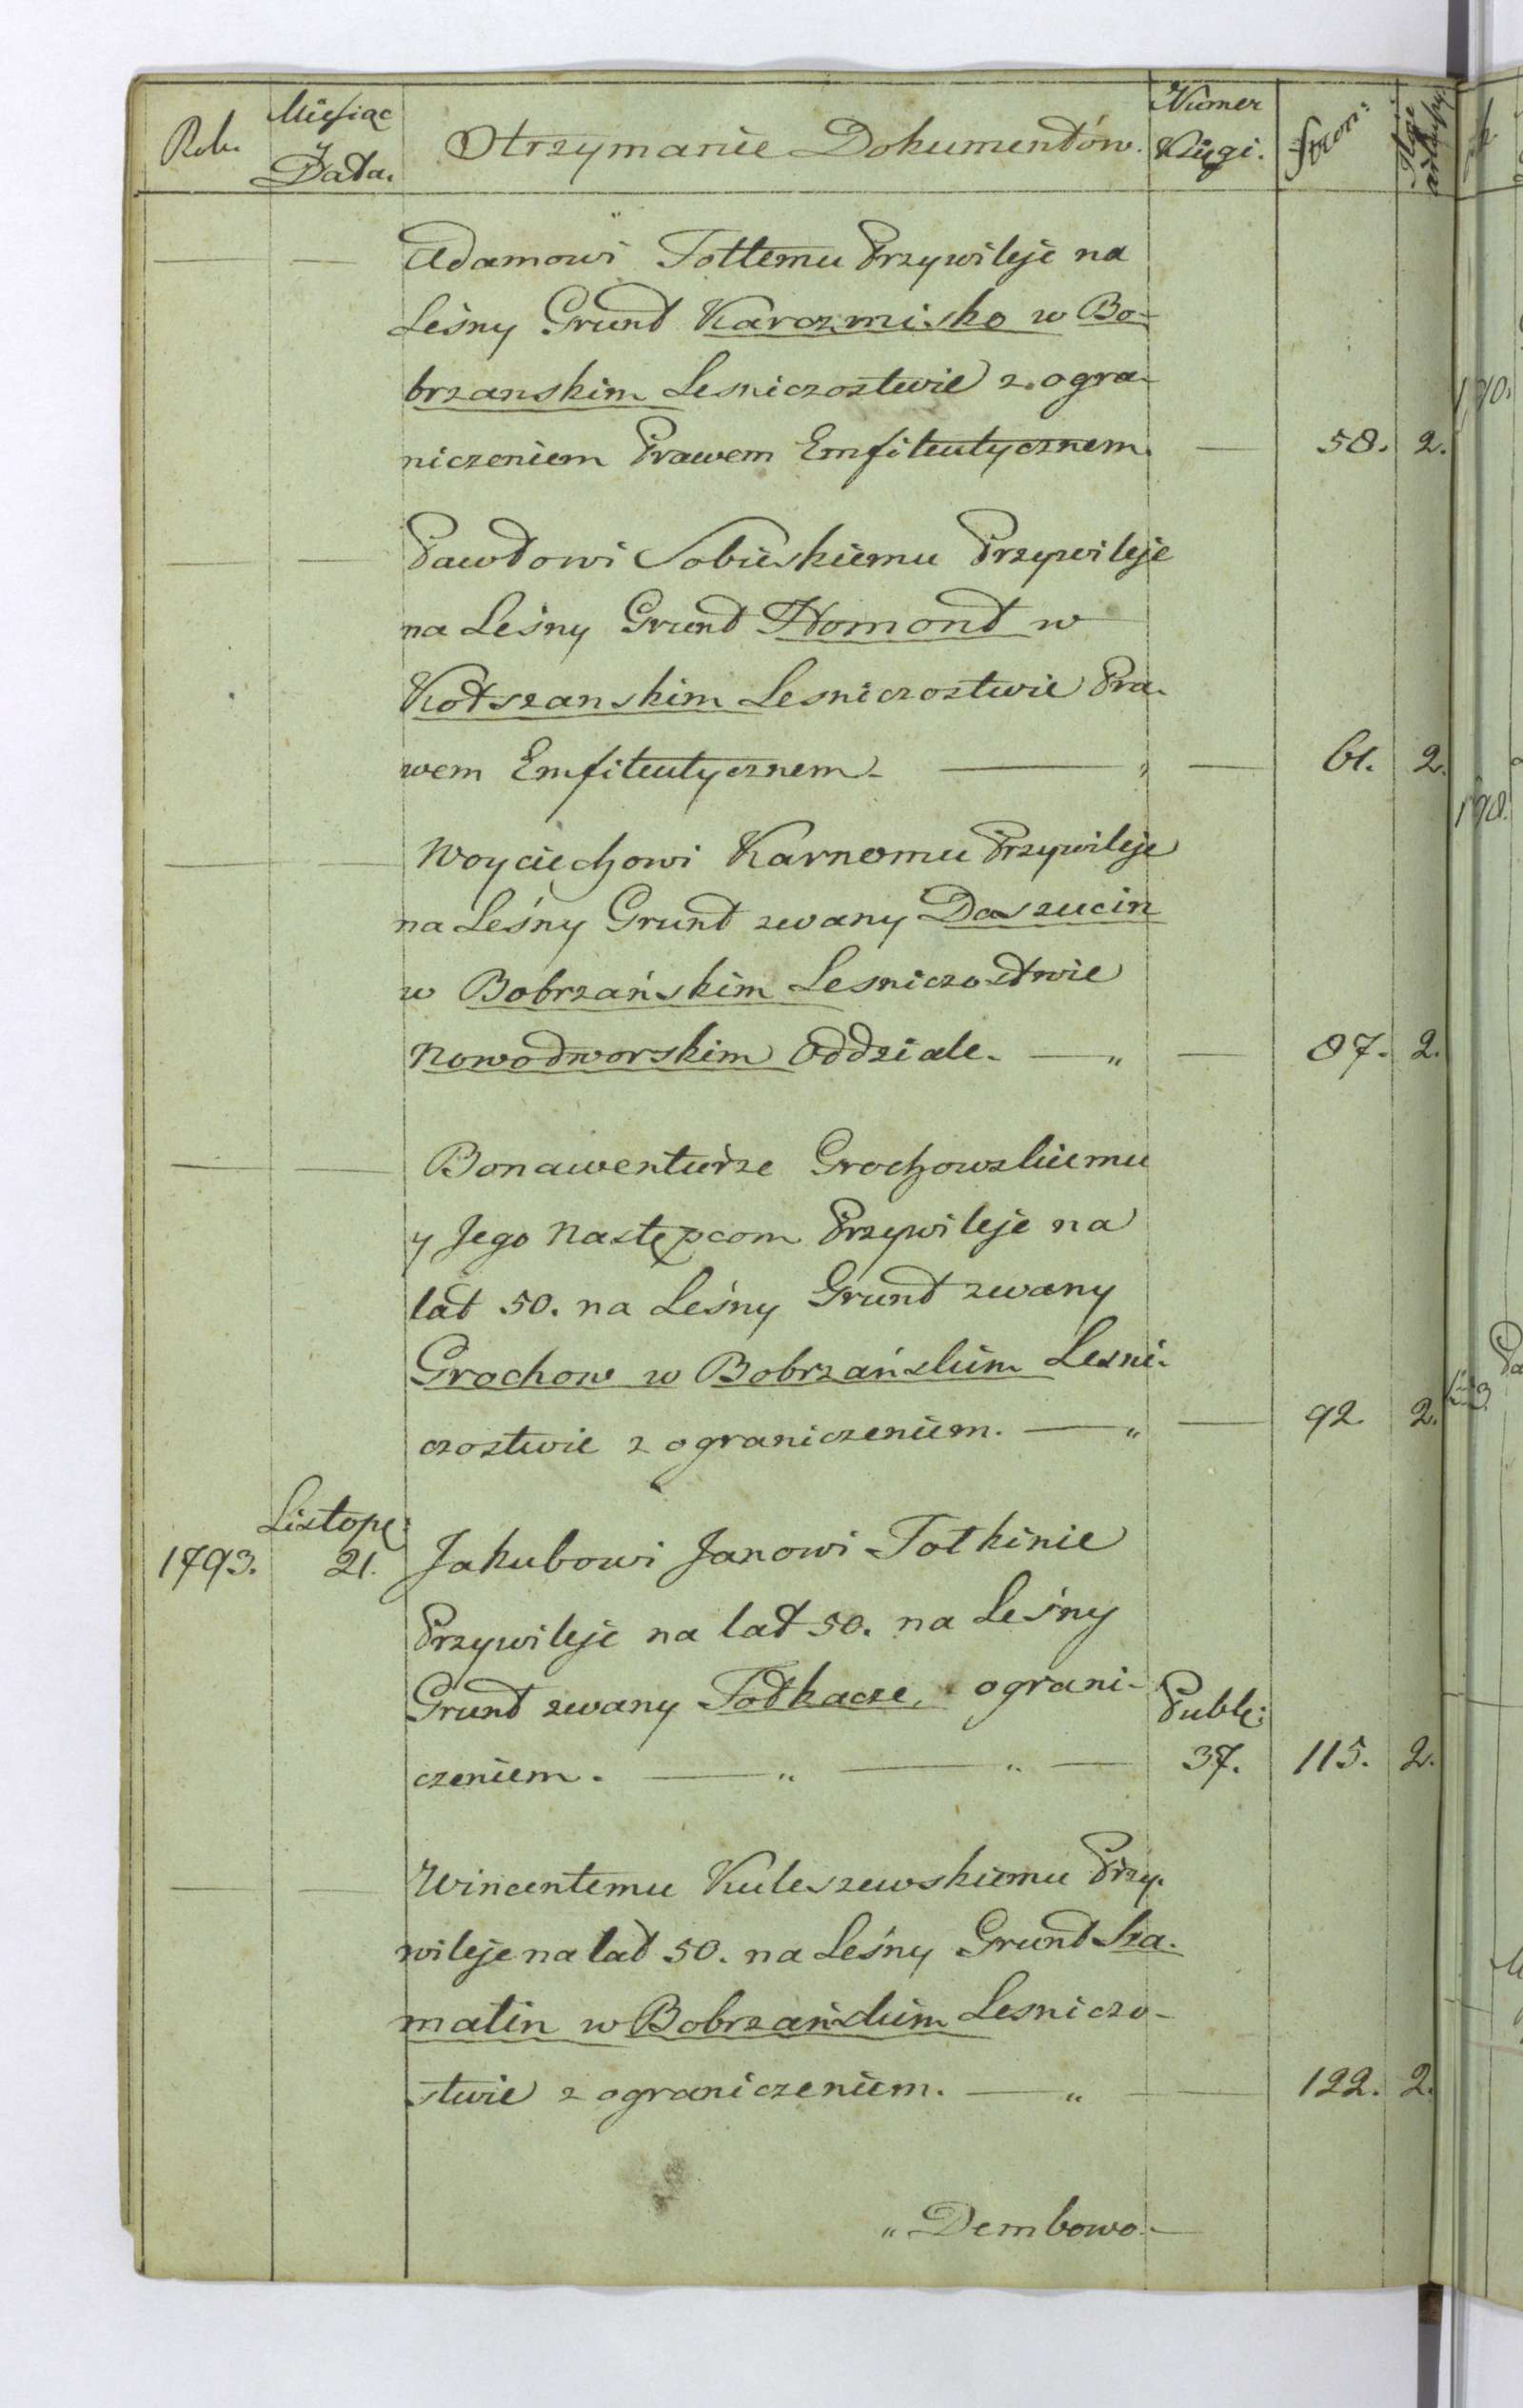 Roku
Miesiąc
Data.
Otrzymanie Dokumentów.
Numer
Księgi.
Stron:
Adamowi Tottemu Przywileje na
Leśny Grunt Karczmisko w Bo-
brzanskim Lesniczostwie z ogra-
niczeniem Prawem Emfiteutycznem. — 58. 2.
Pawłowi Sobieskiemu Przywileje
na Leśny Grunt Homont w
Kotszanskim Lesniczostwie Pra-
wem Emfiteutycznem — 61. 2.
Woyciechowi Karnemu Przywileje
na Leśny Grunt zwany Daszucin
w Bobrzańskim Lesniczostwie
Nowodworskim Oddziale. — „ — 87. 2.
Bonawenturze Grochowskiemu
y Jego Następcom Przywileje na
lat 50. na Leśny Grunt zwany
Grochow w Bobrzańskim Lesni-
czostwie z ograniczeniem. — „ — 92 2.
Listop:
1793. 21. Jakubowi Janowi Totkinie
Przywileje na lat 50. na Leśny
Grunt zwany Tołkacze, ograni-
Publ:
czeniem. — „ — „ — 37. 115. 2.
Wincentemu Kuleszewskiemu Przy-
wileje na lat 50. na Leśny Grunt Sza-
matin w Bobrzańskim Lesniczo-
stwie z ograniczeniem. — „ — 122. 2.
„ Dembowo.